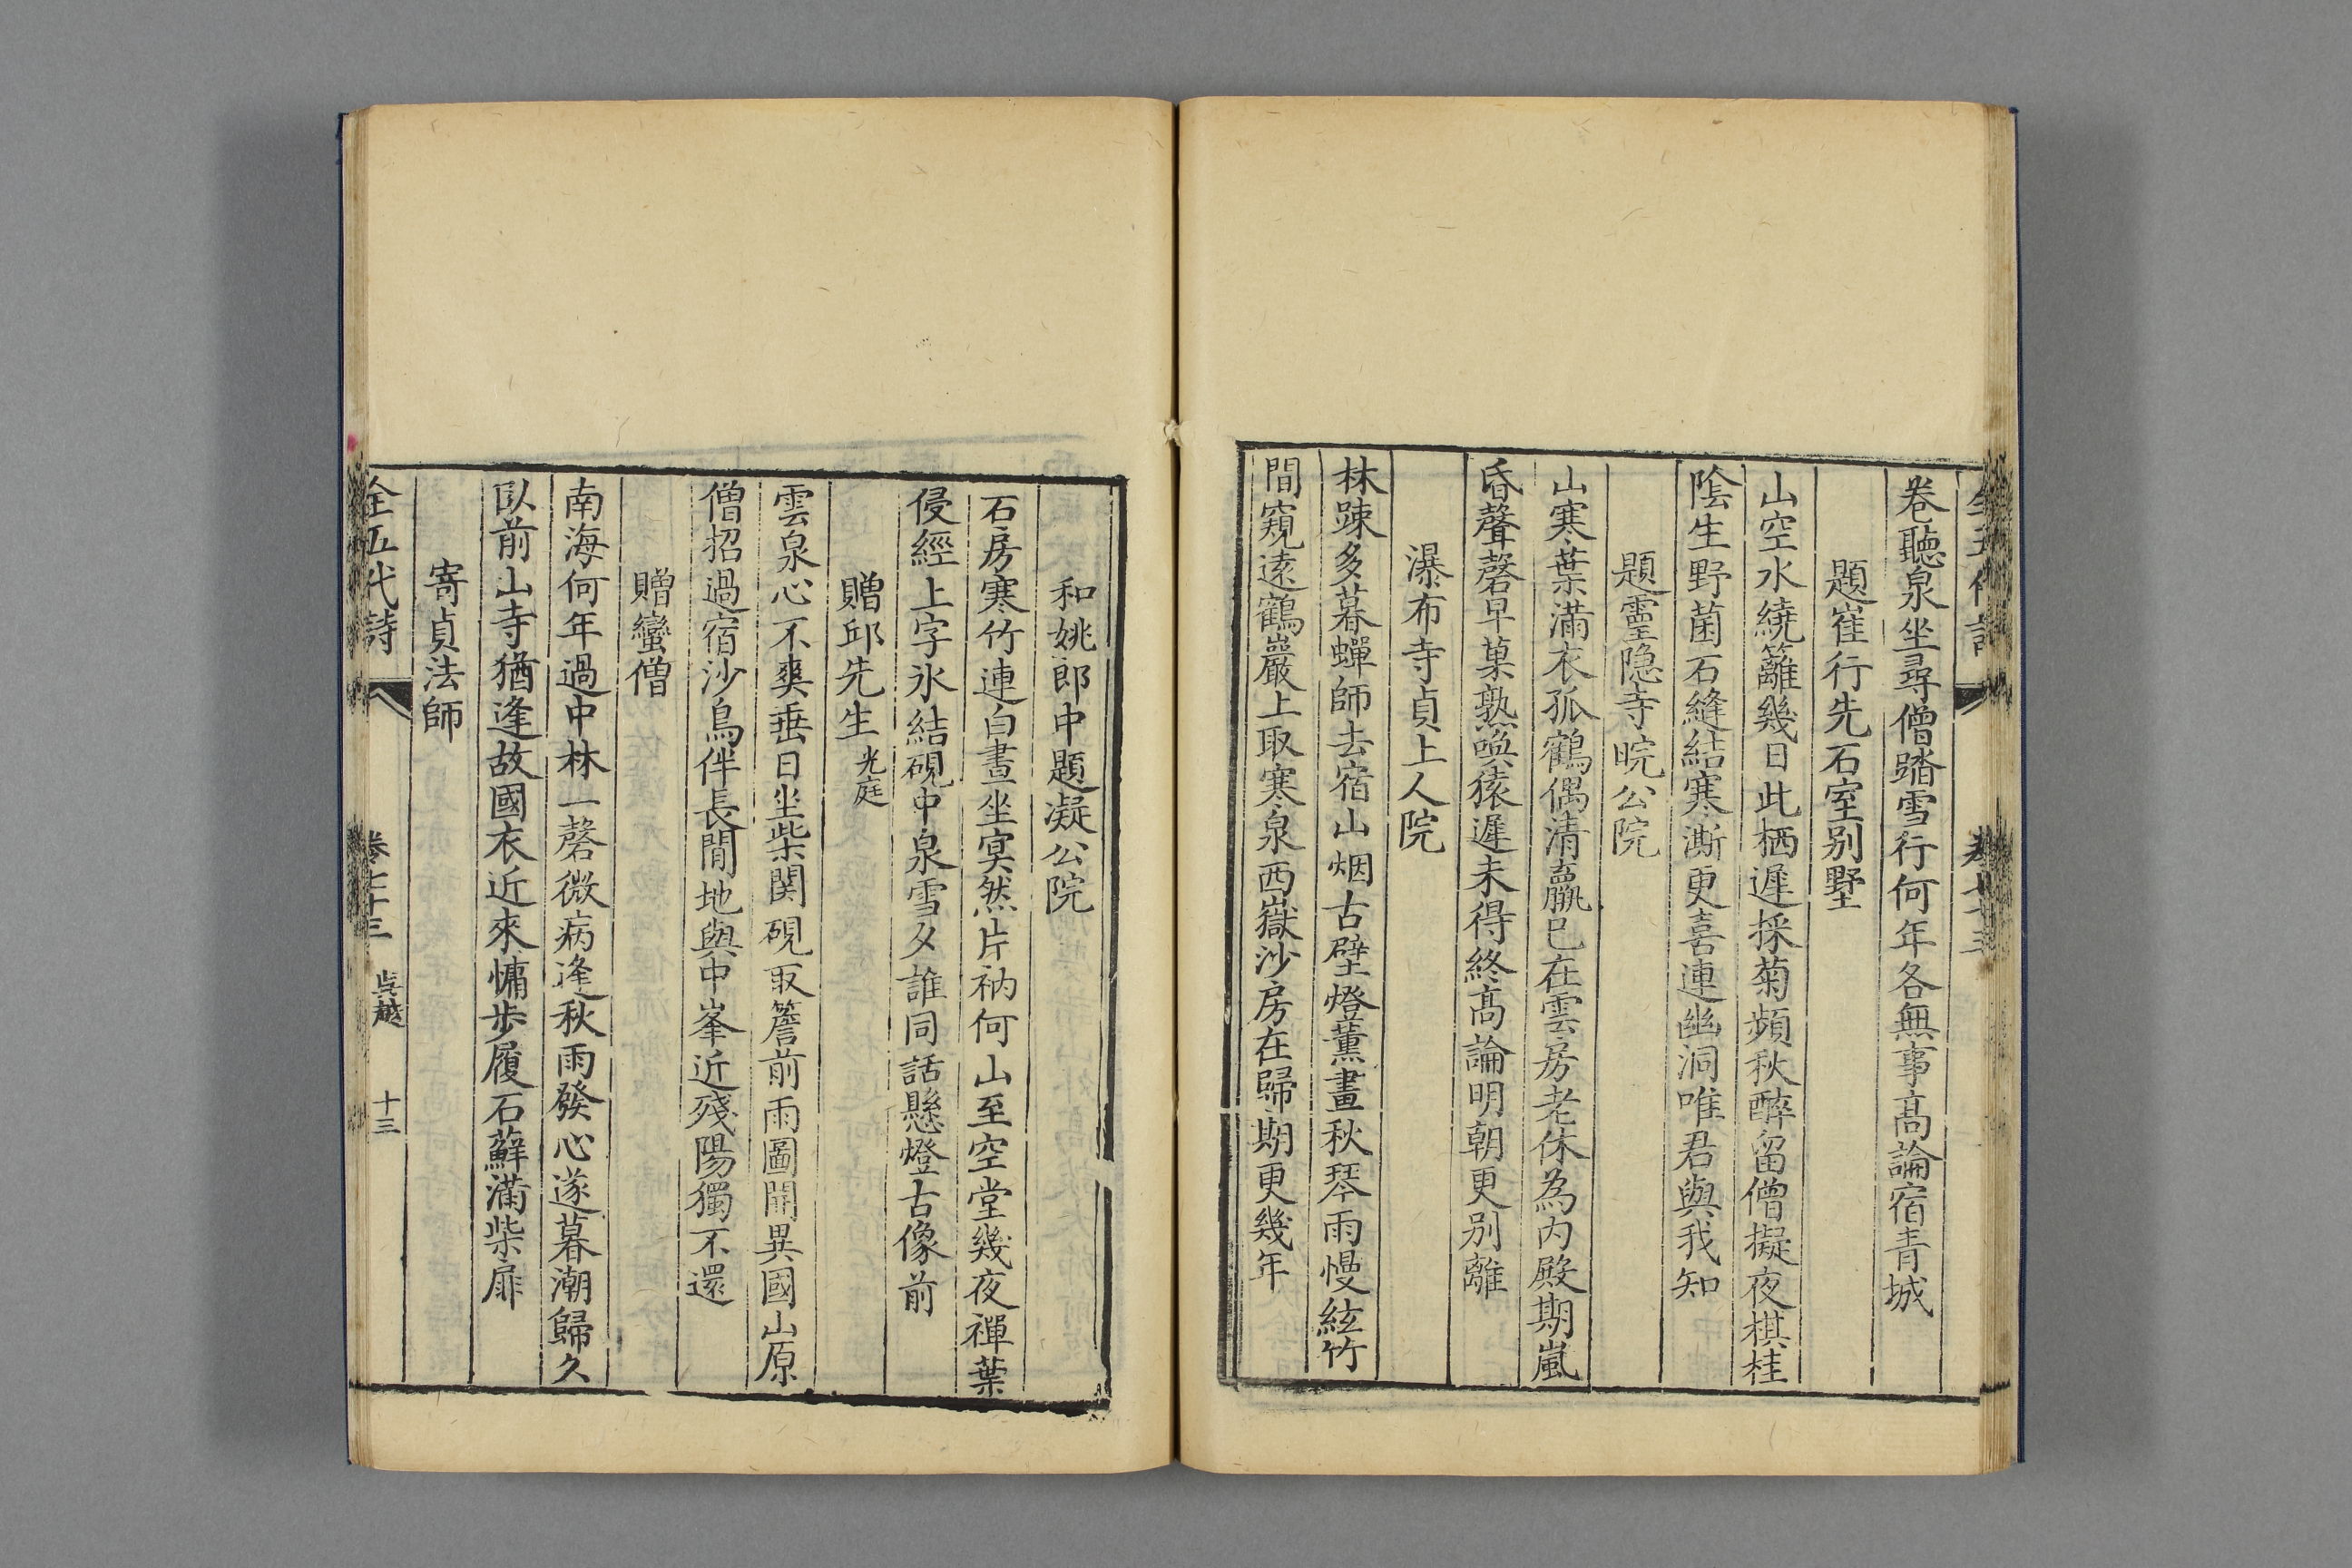 卷聽泉坐尋僧踏雪行何年各無事高論宿青城
題崔行先石室别墅
山空水繞籬幾日此栖遲採菊頻秋醉留僧擬夜棋桂
陰生野菌石縫結寒澌更喜連幽洞唯君與我知
題靈隐寺晥公院
山寒葉滿衣孤鶴偶清羸已在雲房老休為内殿期嵐
昏聲磬早菓熟喚猿遲未得終高論明朝更别離
瀑布寺貞上人院
林踈多暮蟬師去宿山烟古壁燈薰畫秋琴雨慢絃竹
間窺遠鶴巖上取寒泉西嶽沙房在歸期更幾年
和姚郎中題凝公院
石房寒竹連白晝坐冥然片衲何山至空堂幾夜禪葉
侵經上字氷結硯中泉雪夕誰同話懸燈古像前
贈邱先生光庭
雲泉心不爽垂日坐柴関硯取簷前雨圖開異國山原
僧招過宿沙鳥伴長閒地與中峯近殘陽獨不還
贈蠻僧
南海何年過中林一磬微病逢秋雨發心逐暮潮歸久
臥前山寺猶逢故國衣近來慵步履石蘚滿柴扉
寄貞法師
全五代詩 卷七十三 吳越 十三